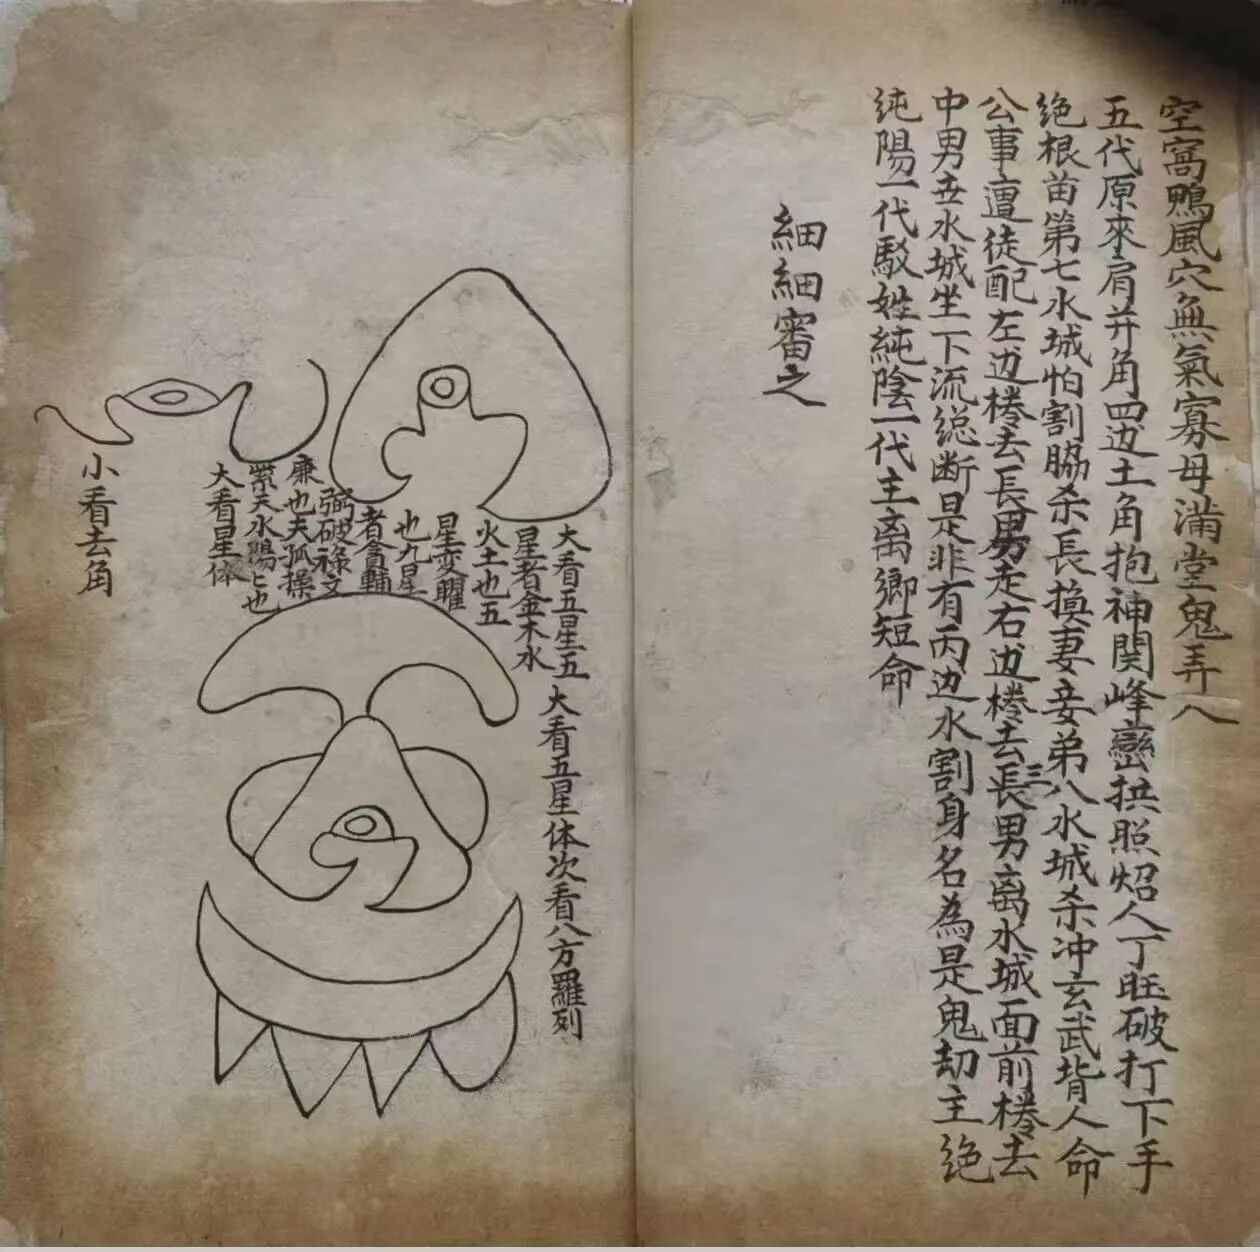 空窩鴨風穴無氣寡母滿堂鬼弄八
五代原來肩并角四边土角抱神関峰巒拱照炤人丁旺破打下手
绝根苗第七水城怕割脇杀長換妻妾弟八水城杀冲玄武背人命
公事遭徒配左边棬去長男走右边棬去長三男离水城面前棬去
中男去水城坐下流総断是非有丙边水割身名為是鬼劫主绝
纯陽一代駁姓純陰一代主离鄉短命
細細審之
大看五星五
星者金木水
火土也五
星变曜
也九星
者貪輔
弼破祿文
廉也夫孤操
紫天水陽匕也
大看星体
小看去角
大看五星体次看八方羅列